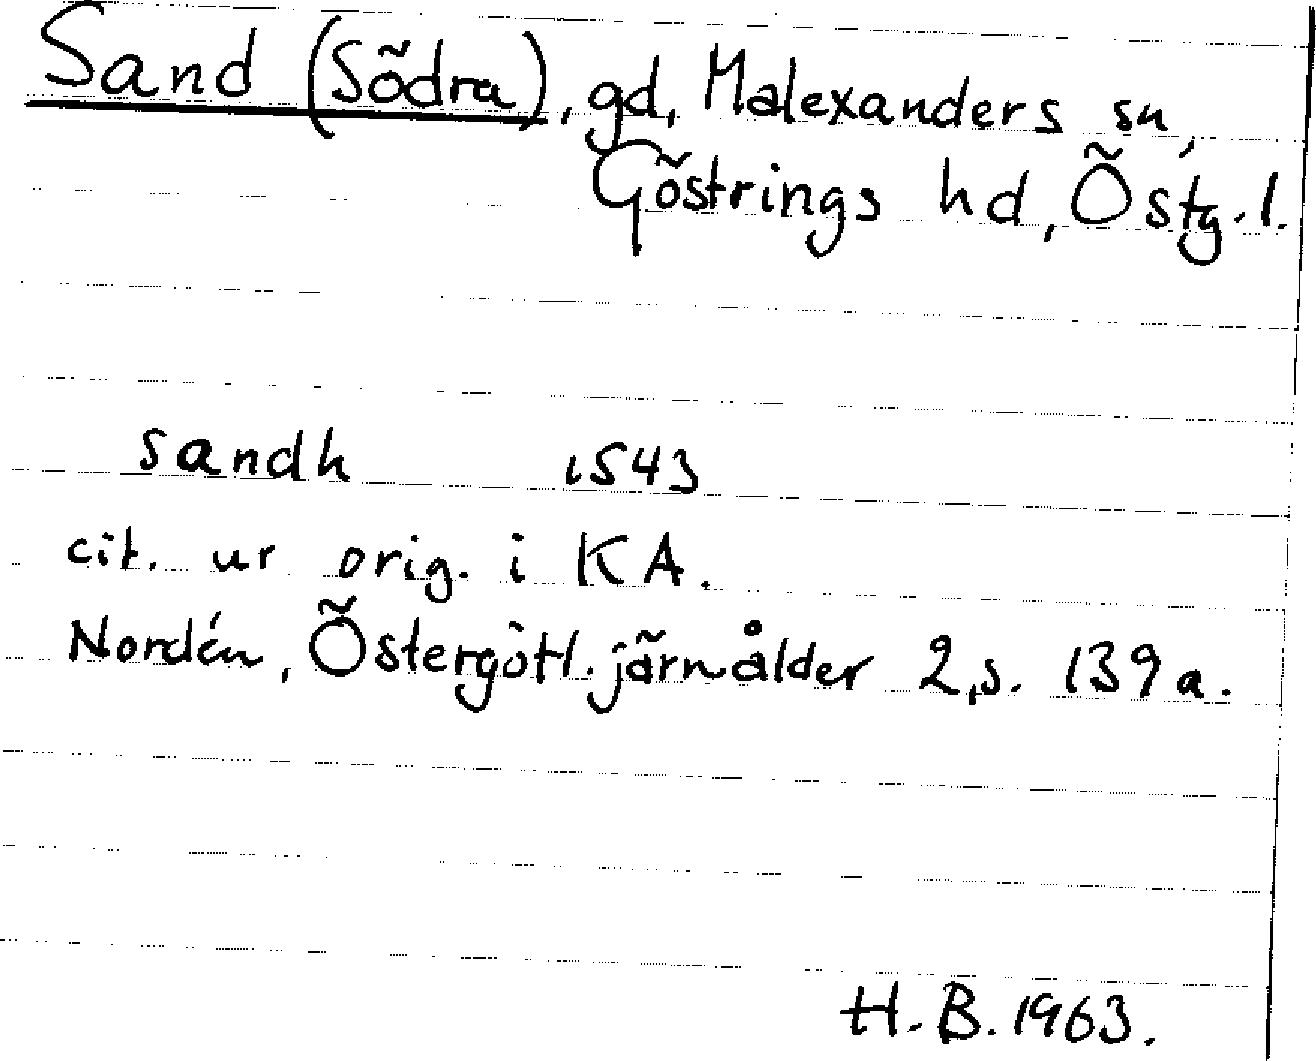 Sand (Södra), gd, Malexanders sn,
Göstrings hd, Östg. l.
Sandh 1543
cit. ur orig. i KA.
Nordén, Östergötl. järnålder 2, s. 139 a.
H. B. 1963.